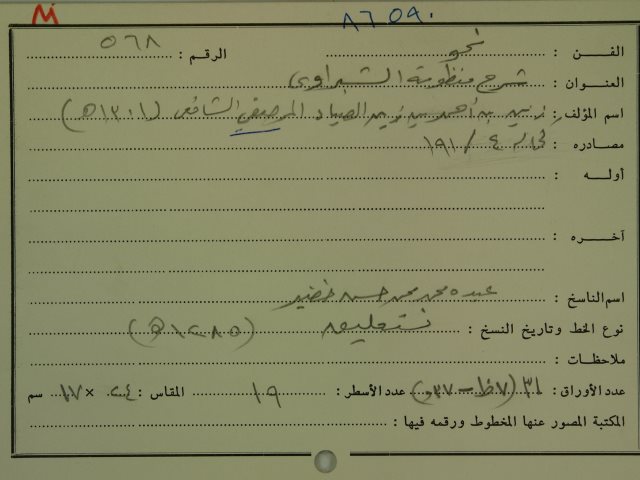 M ٨٦٥٩٠
الفــن : نحو الرقم : ٥٦٨
العنـوان : شرح منظومة الشبراوى
اسم المؤلف : زين بن أحمد بن زين الصياد المرصفي الشافعى (١٣٠١هـ)
مصـادره : كحالة ٤ / ١٩١
أولـــه :
آخـــره :
اسم الناسخ : عبده محمد محمد حسن خضير
نوع الخط وتاريخ النسخ : نستعليق (١٢٨٥هـ)
ملاحظـات :
عدد الأوراق : ٣١ (٧ظ - ٣٧و) عدد الأسطر : ١٩ المقاس : ٢٤ × ١٧ سم
المكتبة المصور عنها المخطوط ورقمه فيها :